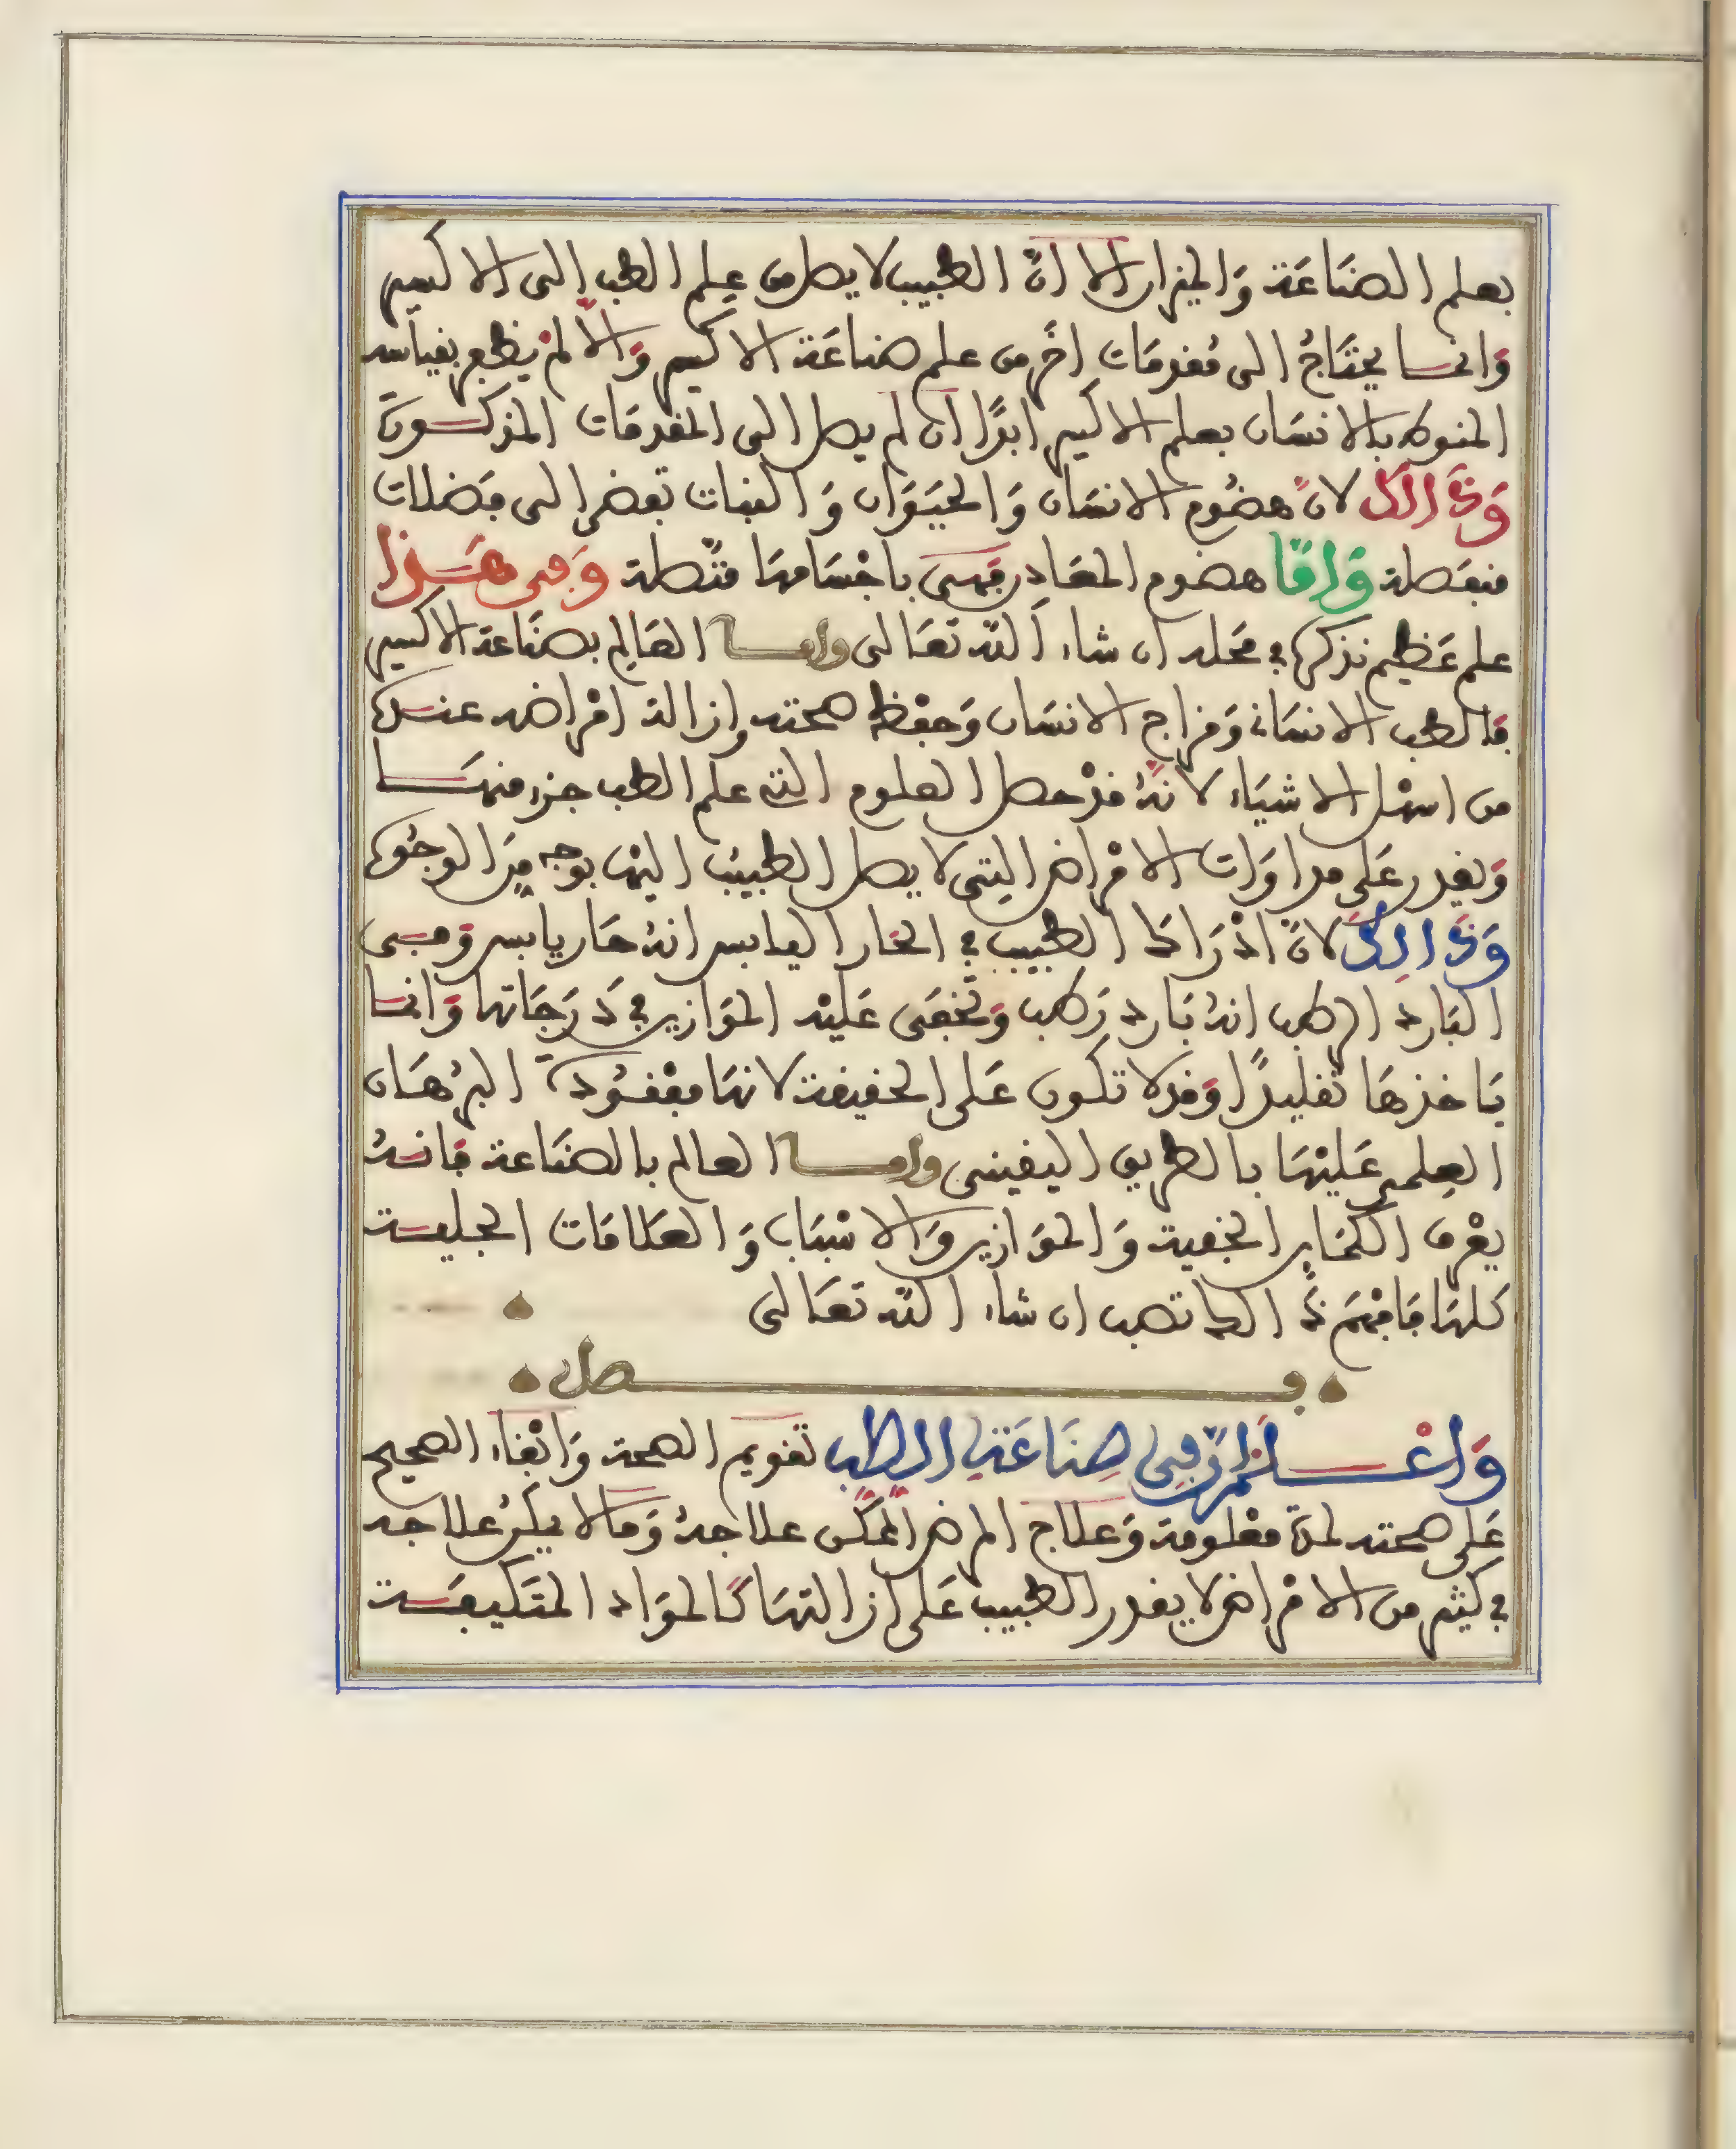 بعلم الصنَاعَة وَالميزان الا انَّ الطبيب لا يصل من عِلم الطب الى الاكسير
وَانمـا يحتَاجُ الى مُقدمَات اخَر من علم صناعَة الاكسير وَالّا لمْ يظفر بقياسه
المنوط بالانسَان بعلم الاكسير ابدًا ان لم يصل الى المقدمَات المذكـورَة
وَذَالك لانّ هضُوم الانسَان وَالحيَوَان وَالنبات تفضى الى فضلات
منفصَلة وَامّا هضوم المعَادن فهى باجْسَامهَا متّصلة وَفى هَـذا
علم عَظيم نذكره في مَحله ان شاء اللّه تعَالى وامـا العَالِم بصنَاعة الاكسير
فالطب الانسَاني وَمزاج الانسَان وَحفْظ صحته وازالة امْراضه عنـده
من اسهْل الاشيَاء لانّهُ قدْ حصل العلوم التي علم الطب جزء منهَـا
وَيقدر عَلى مداوَات الامْراض التِى لا يصل الطبيبُ اليْها بوجه مِنَ الوجُوه
وَذَالِك لانّ ادْرَاك الطبيب في الحَار اليابس انهُ حَار يابس وَفـى
البَارد الرطب انهُ بَارد رَطب وَتخفَى عَليْه الموَازين في دَرَجَاتها وَانمـا
يَاخذهَا تقليدًا وَقد لا تكون عَلى الحقيقة لانهَا مفْقـُودة البرْهَـان
العِلمى عَليْهَا بالطريق اليقينى وامـا العالم بالصنَاعة فانـهُ
يعْرف الكمَاين الخفية وَالموَازين وَالاسْبَاب وَالعَلامَات الجليـة
كلهَا فَافهَم ذَالك تصب ان شاء اللّه تعَالى
فـصل
وَاعْـلَمْ انّ فِى صِنَاعَةِ الطِّبِ تقويم الصحة وَابْقاء الصحيح
عَلى صحته لمدة معْلومة وَعلاج المرض الممكن علاجهُ وَمَا لا يمكنُ علاجه
في كثير من الامْراض لا يقدر الطبيب عَلى ازالتهَا كالموَاد المتَكيفَـة